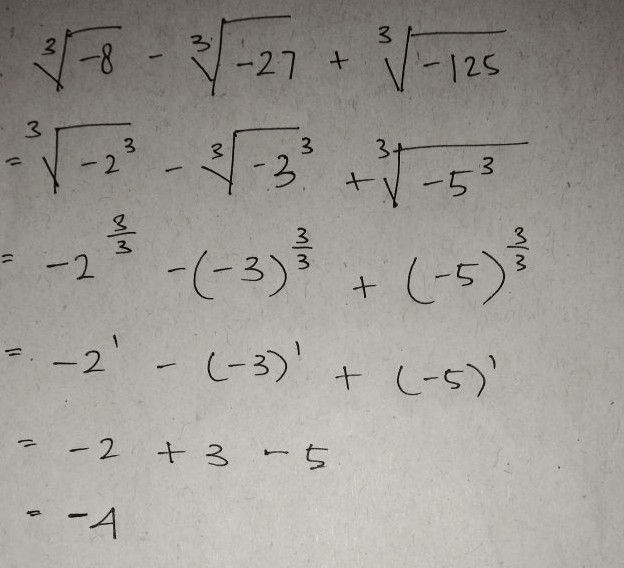 ∛-8 - ∛-27 + ∛-125
= ∛-2³ - ∛-3³ + ∛-5³
= -2^(3/3) - (-3)^(3/3) + (-5)^(3/3)
= -2¹ - (-3)¹ + (-5)¹
= -2 + 3 - 5
= -4